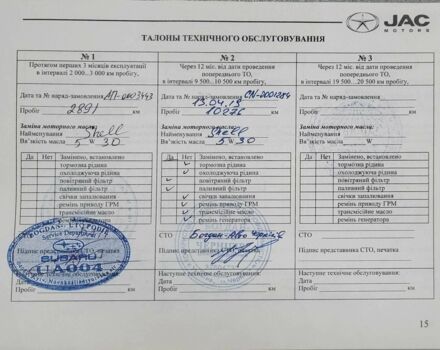 JAC
MOTORS
ТАЛОНЫ ТЕХНІЧНОГО ОБСЛУГОВУВАННЯ
№ 1
Протягом перших 3 місяців експлуатації
в інтервалі 2 000–3 000 км пробігу,
Дата та № наряд-замовлення АП-0003443
Пробіг 2891 км
Заміна моторного масла:
Найменування Shell
В'язкість масла 5 W 30
Да Нет Замінено, встановлено
тормозна рідина
охолоджуюча рідина
повітряний фільтр
паливний фільтр
свічки запалювання
ремінь приводу ГРМ
трансмісійне масло
ремінь генератора
SUBARU
UA004
Підпис
Наступне технічне обслуговування:
Дата
Пробіг км
№ 2
Через 12 міс. від дати проведення
попереднього ТО,
в інтервалі 9 500–10 500 км пробігу,
CN-0001284
Дата та № наряд-замовлення 13.04.19
Пробіг 10276 км
Заміна моторного масла:
Найменування Shell
В'язкість масла 5 W 30
Да Нет Замінено, встановлено
тормозна рідина
охолоджуюча рідина
повітряний фільтр
паливний фільтр
свічки запалювання
ремінь приводу ГРМ
трансмісійне масло
ремінь генератора
СТО
Підпис
Наступне технічне обслуговування:
Дата
Пробіг км
№ 3
Через 12 міс. від дати проведення
попереднього ТО,
в інтервалі 19 500–20 500 км пробігу,
Дата та № наряд-замовлення
Пробіг км
Заміна моторного масла:
Найменування
В'язкість масла W
Да Нет Замінено, встановлено
тормозна рідина
охолоджуюча рідина
повітряний фільтр
паливний фільтр
свічки запалювання
ремінь приводу ГРМ
трансмісійне масло
ремінь генератора
СТО
Підпис представника СТО, печатка
Наступне технічне обслуговування:
Дата
Пробіг км
15